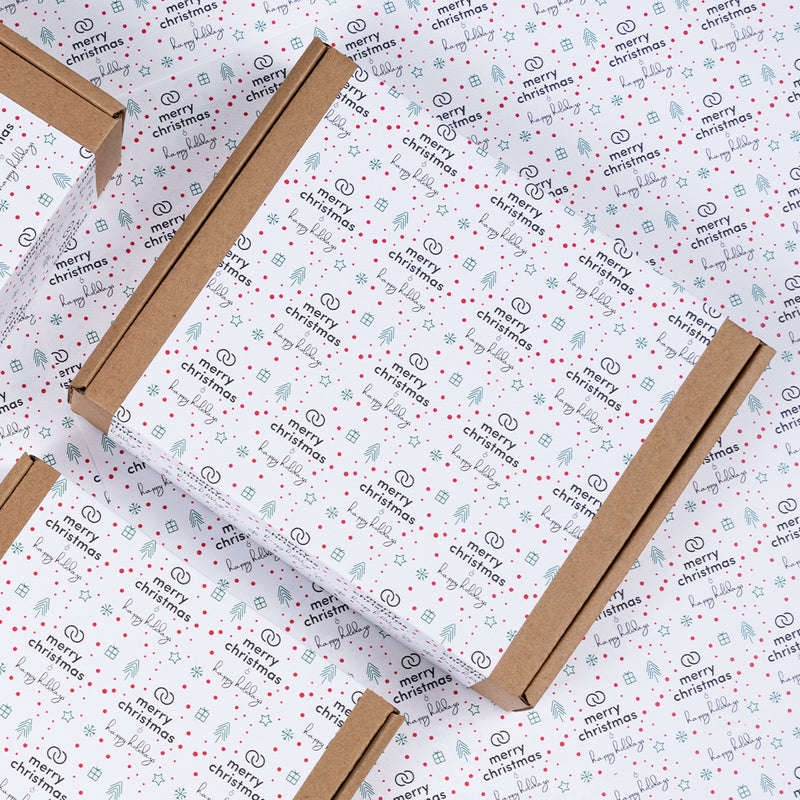 merry
christmas
happy holidays